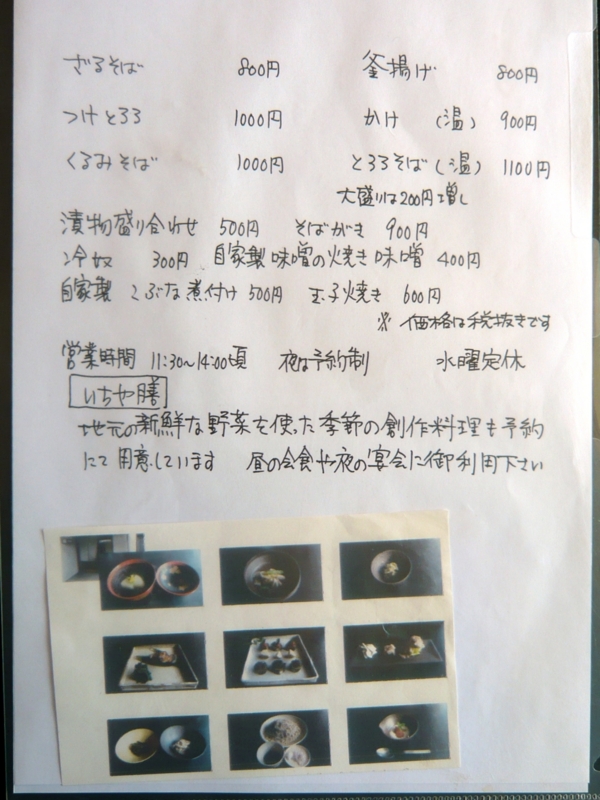 ざるそば 800円 釜揚げ 800円
つけとろろ 1000円 かけ (温) 900円
くるみそば 1000円 とろろそば(温) 1100円
大盛りは200円増し
漬物盛り合わせ 500円 そばがき 900円
冷奴 300円 自家製味噌の焼き味噌 400円
自家製 こぶな煮付け 500円 玉子焼き 600円
※ 価格は税抜きです
営業時間 11:30〜14:00頃 夜は予約制 水曜定休
いちや膳
地元の新鮮な野菜を使った季節の創作料理も予約
にて用意しています 昼の会食や夜の宴会に御利用下さい